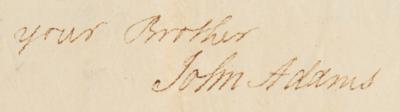 your Brother
John Adams